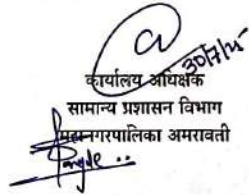 30/7/25
कार्यालय अधिक्षक
सामान्य प्रशासन विभाग
महानगरपालिका अमरावती